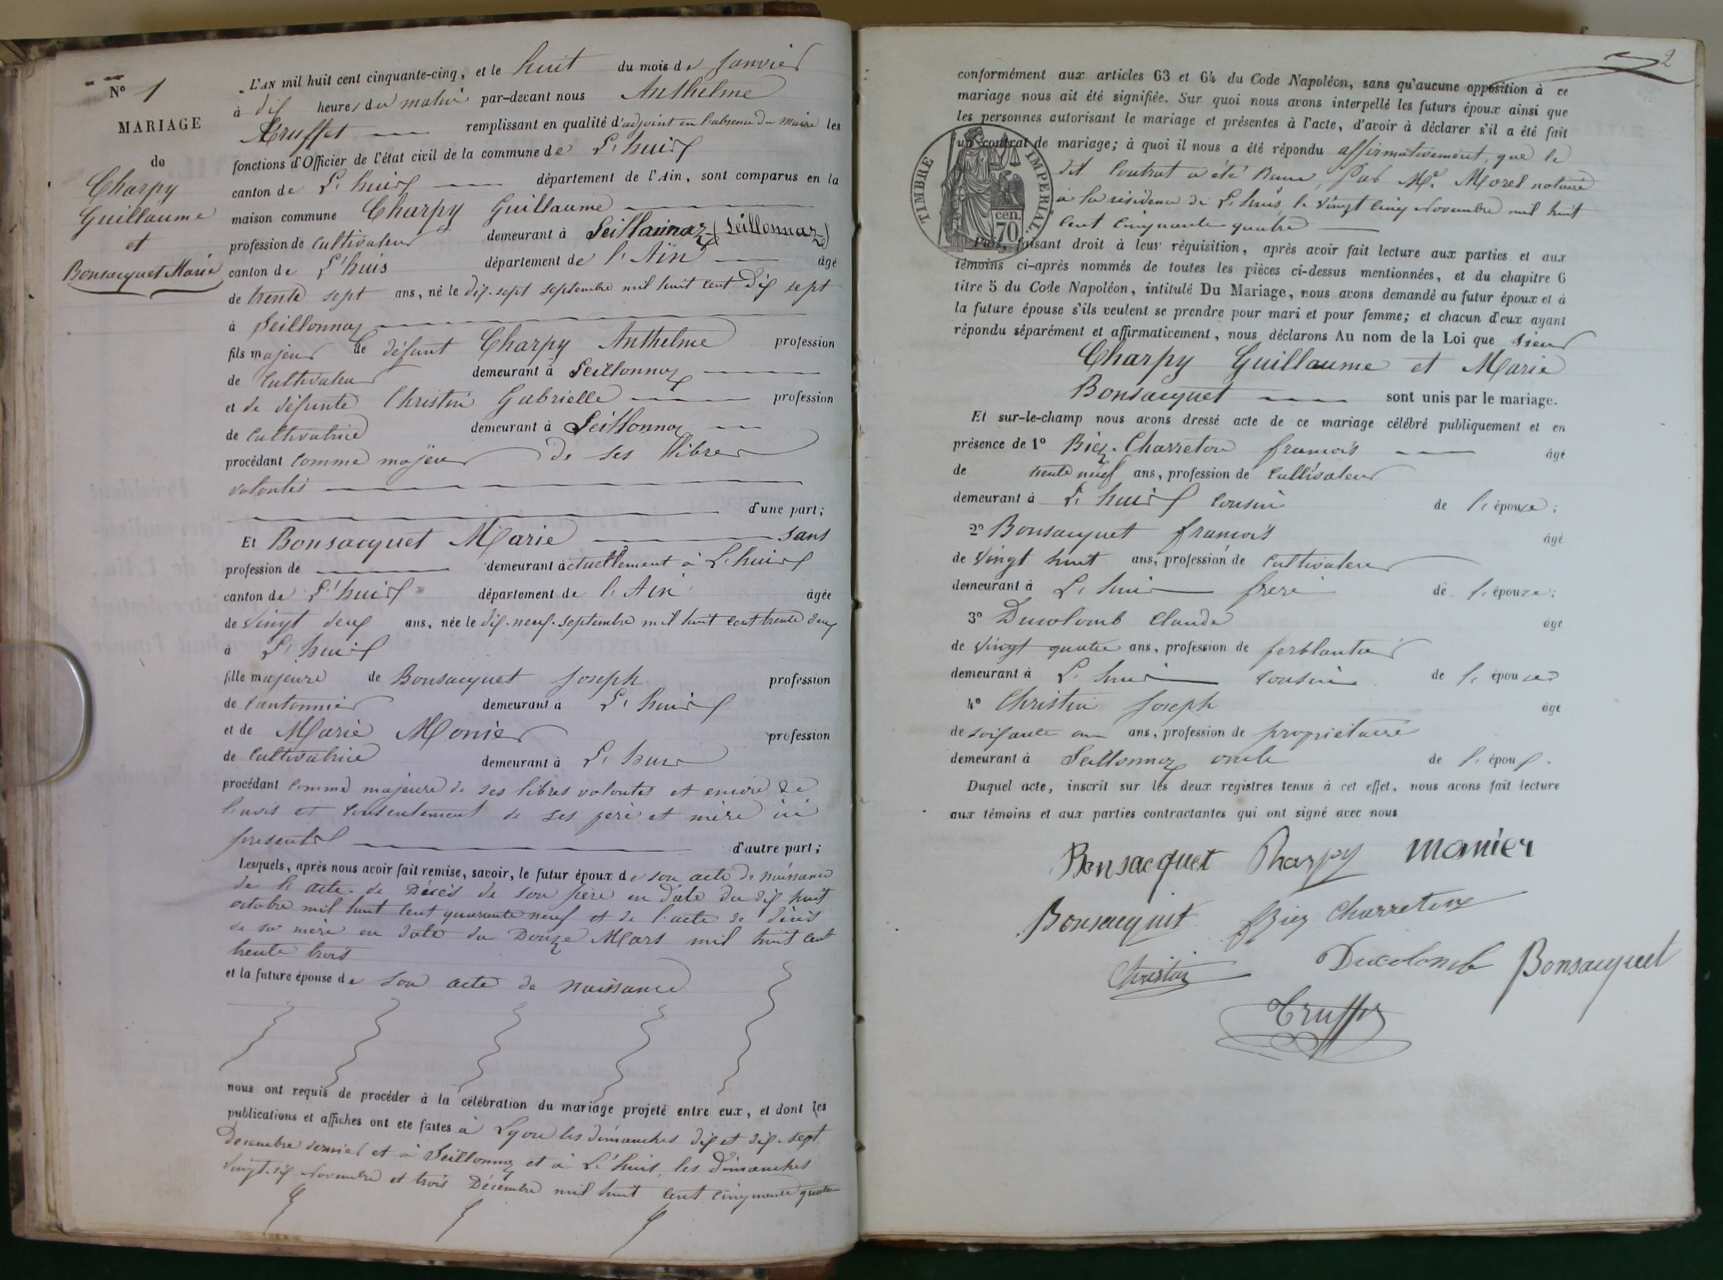 N° 1
MARIAGE
de
Charpy
Guillaume
et
Bonsacquet Marie
L'AN mil huit cent cinquante-cinq, et le huit du mois de Janvier
à dix heures du matin par-devant nous Anthelme
Truffet remplissant en qualité d'adjoint en l'absence du maire les
fonctions d'Officier de l'état civil de la commune de L'huis
canton de L'huis département de l'Ain, sont comparus en la
maison commune Charpy Guillaume
profession de cultivateur demeurant à Seillonnaz (Seillonnaz)
canton de L'huis département de l'Ain âgé
de trente sept ans, né le dix-sept septembre mil huit cent dix sept
à Seillonnaz
fils majeur de défunt Charpy Anthelme profession
de cultivateur demeurant à Seillonnaz
et de défunte Christin Gabrielle profession
de cultivatrice demeurant à Seillonnaz
procédant comme majeur de ses libres
volontés
d'une part;
Et Bonsacquet Marie sans
profession de demeurant actuellement à L'huis
canton de L'huis département de l'Ain âgée
de vingt deux ans, née le dix-neuf septembre mil huit cent trente deux
à L'huis
fille majeure de Bonsacquet Joseph profession
de cantonnier demeurant à L'huis
et de Marie Monier profession
de cultivatrice demeurant à L'huis
procédant comme majeure de ses libres volontés et encore de
l'avis et consentement de ses père et mère ici
présents
d'autre part;
Lesquels, après nous avoir fait remise, savoir, le futur époux de son acte de naissance
de l'acte de décès de son père en date du dix huit
octobre mil huit cent quarante neuf et de l'acte de décès
de sa mère en date du Douze Mars mil huit cent
trente trois
et la future épouse de son acte de naissance
nous ont requis de procéder à la célébration du mariage projeté entre eux, et dont les
publications et affiches ont été faites à Lyon les dimanches dix et dix-sept
Décembre dernier et à Seillonnaz et à L'huis les dimanches
vingt-six Novembre et trois Décembre mil huit cent cinquante quatre
2
conformément aux articles 63 et 64 du Code Napoléon, sans qu'aucune opposition à ce
mariage nous ait été signifiée. Sur quoi nous avons interpellé les futurs époux ainsi que
les personnes autorisant le mariage et présentes à l'acte, d'avoir à déclarer s'il a été fait
un contrat de mariage; à quoi il nous a été répondu affirmativement, que le
dit Contrat a été Passé, par Me Morel notaire
à la résidence de L'huis, le vingt cinq Novembre mil huit
cent cinquante quatre
TIMBRE IMPÉRIAL
70 cen.
Puis, faisant droit à leur réquisition, après avoir fait lecture aux parties et aux
témoins ci-après nommés de toutes les pièces ci-dessus mentionnées, et du chapitre 6
titre 5 du Code Napoléon, intitulé Du Mariage, nous avons demandé au futur époux et à
la future épouse s'ils veulent se prendre pour mari et pour femme; et chacun d'eux ayant
répondu séparément et affirmativement, nous déclarons Au nom de la Loi que sieur
Charpy Guillaume et Marie
Bonsacquet sont unis par le mariage.
Et sur-le-champ nous avons dressé acte de ce mariage célébré publiquement et en
présence de 1° Biez-Charreton françois âgé
de trente neuf ans, profession de cultivateur
demeurant à L'huis cousin de l'épouse;
2° Bonsacquet françois âgé
de vingt huit ans, profession de cultivateur
demeurant à L'huis frère de l'épouse;
3° Ducolomb Claude âgé
de vingt quatre ans, profession de ferblantier
demeurant à L'huis cousin de l'épouse
4° Christin Joseph âgé
de soixante ans, profession de propriétaire
demeurant à Seillonnaz oncle de l'époux.
Duquel acte, inscrit sur les deux registres tenus à cet effet, nous avons fait lecture
aux témoins et aux parties contractantes qui ont signé avec nous
Bonsacquet Charpy Monier
Bonsacquet Biez Charreton
Christin Ducolomb Bonsacquet
Truffet